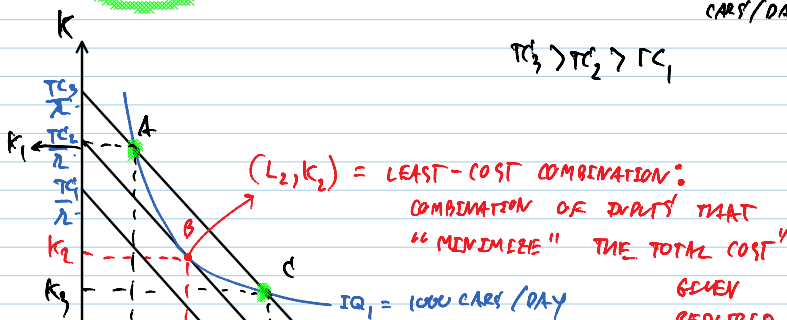 CARS/DA
K
TC3 > TC2 > TC1
TC3
r
A
TC2
r
K1
(L2, K2) = LEAST-COST COMBINATION:
TC1
r
COMBINATION OF INPUTS THAT
B
"MINIMIZE" THE TOTAL COST"
K2
C
GIVEN
K3
IQ1 = 1000 CARS/DAY
REQUIRED